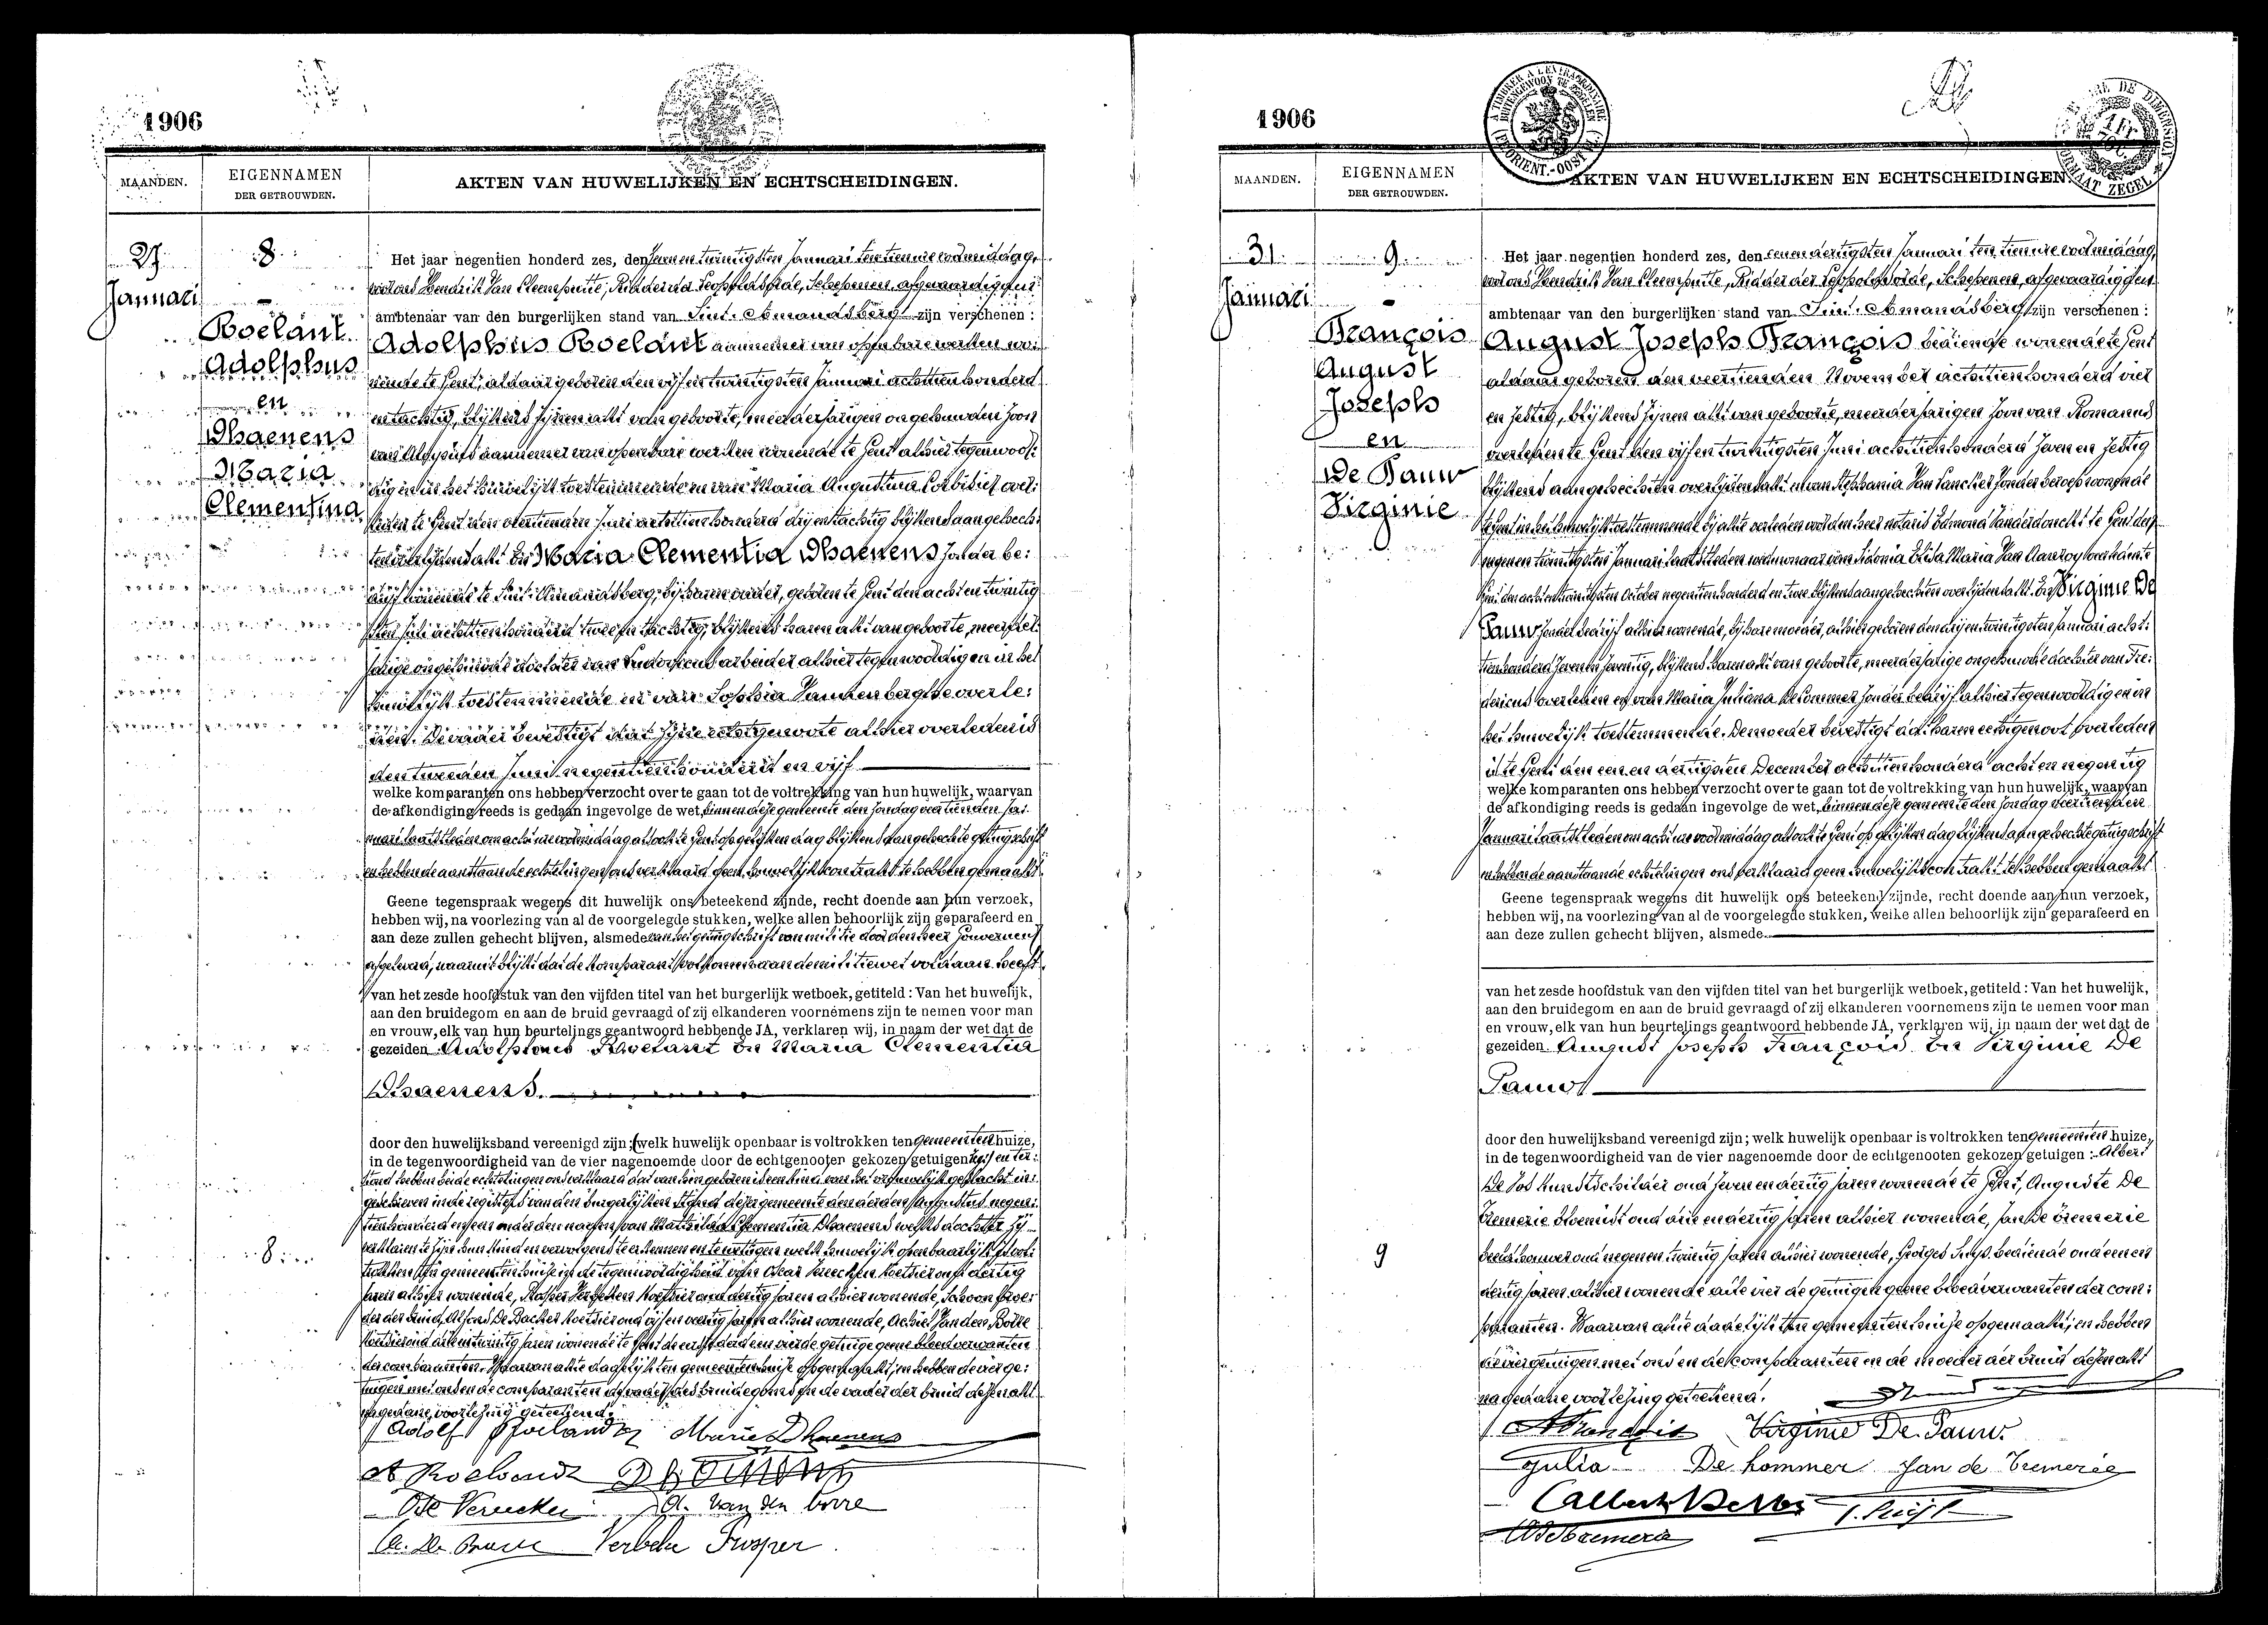 1906
MAANDEN.
EIGENNAMEN
DER GETROUWDEN.
AKTEN VAN HUWELIJKEN EN ECHTSCHEIDINGEN.
27
Januari
8
Roelant
Adolphus
en
Dhaenens
Maria
Clementina
Het jaar negentien honderd zes, den zeven en twintigsten Januari ten tien ure voormiddag,
voor ons Hendrik Van Cleemputte, Ridder der Leopoldsorde, Schepenen, afgevaardigden
ambtenaar van den burgerlijken stand van Sint-Amandsberg zijn verschenen :
Adolphus Roelant aannemer van openbare werken wo:
nende te Gent, aldaar geboren den vijf en twintigsten Januari achttien honderd
en tachtig, blijkens zijnen akt van geboorte, meerderjarigen ongehuwden zoon
van Aloysius aannemer van openbare werken wonende te Gent alhier tegenwoor:
dig en in het huwelijk toestemmende en van Maria Augustina overl:
leden te Gent den veertienden Juni achttien honderd drij en tachtig blijkens aangehech:
ten overlijdensakt En Maria Clementia Dhaenens zonder be:
drijf wonende te Sint-Amandsberg, bij haren vader, geboren te Gent den acht en twintig
sten Juli achttien honderd twee en tachtig, blijkens haren akt van geboorte, meerder:
jarige ongehuwde dochter van Ludovicus arbeider alhier tegenwoordig en in het
huwelijk toestemmende en van Sophia Vannenberghe overle:
den. De vader bevestigt dat zijne echtgenoote alhier overleden is
den tweeden Juni negentien honderd en vijf
welke komparanten ons hebben verzocht over te gaan tot de voltrekking van hun huwelijk, waarvan
de afkondiging reeds is gedaan ingevolge de wet, binnen deze gemeente den zondag veertienden Ja:
nuari laatstleden om acht ure voormiddag alsook te Gent op gelijken dag blijkens aangehechte getuigschrift
en hebben de aanstaande echtelingen ons verklaard geen huwelijkskontrakt te hebben gemaakt.
Geene tegenspraak wegens dit huwelijk ons beteekend zijnde, recht doende aan hun verzoek,
hebben wij, na voorlezing van al de voorgelegde stukken, welke allen behoorlijk zijn geparafeerd en
aan deze zullen gehecht blijven, alsmede van het getuigschrift van militie door den heer Gouverneur
afgeleverd, waaruit blijkt dat de komparant volkomen aan de militiewet voldaan heeft.
van het zesde hoofdstuk van den vijfden titel van het burgerlijk wetboek, getiteld : Van het huwelijk,
aan den bruidegom en aan de bruid gevraagd of zij elkanderen voornemens zijn te nemen voor man
en vrouw, elk van hun beurtelings geantwoord hebbende JA, verklaren wij, in naam der wet dat de
gezeiden Adolphus Roelant en Maria Clementia
Dhaenens.
door den huwelijksband vereenigd zijn; welk huwelijk openbaar is voltrokken ten gemeentenhuize,
in de tegenwoordigheid van de vier nagenoemde door de echtgenooten gekozen getuigen
hebben beide echtelingen ons verklaard dat van hun geboren is een kind van het vrouwelijk geslacht in:
geschreven in de registers van den burgerlijken stand dezer gemeente den Augustus negen:
tien honderd en onder den naam van Clementia Dhaenens welke dochter zij
verklaren te zijn hun kind en vervolgens te erkennen en te wettigen welk huwelijk openbaarlijk is vol:
trokken ten gemeentenhuize in de tegenwoordigheid van Oscar Vereecken oud dertig
jaren alhier wonende, Prosper Verbeken oud dertig jaren alhier wonende, schoon broe:
der der bruid, Alfons De Backer oud vijf en veertig jaren alhier wonende, Achiel Van den Borre
oud en twintig jaren wonende te Gent de eerste derde en vierde getuige geene bloedverwanten
der comparanten. Waarvan akte dadelijk ten gemeentenhuize opgemaakt, en hebben de vier ge:
tuigen met ons en de comparanten de vader des bruidegoms en de vader der bruid dezen akt
na gedane voorlezing geteekend.
8
Adolf Roelandt Marie Dhaenens
A Roelandt
Ote Vereecken A. Van den Borre
Verbeke Prosper
1906
MAANDEN.
EIGENNAMEN
DER GETROUWDEN.
AKTEN VAN HUWELIJKEN EN ECHTSCHEIDINGEN.
31
Januari
9
François
August
Joseph
en
De Pauw
Virginie
Het jaar negentien honderd zes, den eenen dertigsten Januari ten tien ure voormiddag,
voor ons Hendrik Van Cleemputte, Ridder der Leopoldsorde, Schepenen, afgevaardigden
ambtenaar van den burgerlijken stand van Sint-Amandsberg zijn verschenen :
August Joseph François bediende wonende te Gent
aldaar geboren den veertienden November achttien honderd vier
en zestig, blijkens zijnen akt van geboorte, meerderjarigen zoon van Romanus
overleden te Gent den vijf en twintigsten Juni achttien honderd zeven en zestig
blijkens aangehechten overlijdensakt en van Stephania Van Lancker zonder beroep wonende
te Gent in het huwelijk toestemmende bij akte verleden voor den heer notaris Edmond Vanderdonckt te Gent den
negenen twintigsten Januari laatstleden weduwnaar van Sidonia Elisa Maria Van overleden te
Gent den acht en twintigsten October negentien honderd en twee blijkens aangehechten overlijdensakt. En Virginie De
Pauw zonder bedrijf alhier wonende, bij hare moeder, alhier geboren den drij en twintigsten Januari acht:
tien honderd zeven en zeventig, blijkens haren akt van geboorte, meerderjarige ongehuwde dochter van Fre:
dericus overleden en van Maria Juliana De Commer zonder bedrijf alhier tegenwoordig en in
het huwelijk toestemmende. De moeder bevestigt dat haren echtgenoot overleden
is te Gent den een en dertigsten December achttien honderd acht en negentig
welke komparanten ons hebben verzocht over te gaan tot de voltrekking van hun huwelijk, waarvan
de afkondiging reeds is gedaan ingevolge de wet, binnen deze gemeente den zondag veertienden
Januari laatstleden om acht ure voormiddag alsook te Gent op gelijken dag blijkens aangehechte getuigschrift
en hebben de aanstaande echtelingen ons verklaard geen huwelijkscontrakt te hebben gemaakt
Geene tegenspraak wegens dit huwelijk ons beteekend zijnde, recht doende aan hun verzoek,
hebben wij, na voorlezing van al de voorgelegde stukken, welke allen behoorlijk zijn geparafeerd en
aan deze zullen gehecht blijven, alsmede
van het zesde hoofdstuk van den vijfden titel van het burgerlijk wetboek, getiteld : Van het huwelijk,
aan den bruidegom en aan de bruid gevraagd of zij elkanderen voornemens zijn te nemen voor man
en vrouw, elk van hun beurtelings geantwoord hebbende JA, verklaren wij, in naam der wet dat de
gezeiden August Joseph François en Virginie De
Pauw
door den huwelijksband vereenigd zijn; welk huwelijk openbaar is voltrokken ten gemeentenhuize,
in de tegenwoordigheid van de vier nagenoemde door de echtgenooten gekozen getuigen : Albert
De Vos Kunstschilder oud zeven en dertig jaren wonende te Gent, Auguste De
Bremerie bloemist oud drie en dertig jaren alhier wonende, Jan De Bremerie
beeldhouwer oud negenen twintig jaren alhier wonende, Georges Suys bediende oud eenen
dertig jaren alhier wonende alle vier de getuigen geene bloedverwanten der com:
paranten. Waarvan akte dadelijk ten gemeentenhuize opgemaakt, en hebben
de vier getuigen met ons en de comparanten en de moeder der bruid dezen akt
na gedane voorlezing geteekend.
9
A François Virginie De Pauw
Julia De Commer Jan de Bremerie
Albert De Vos